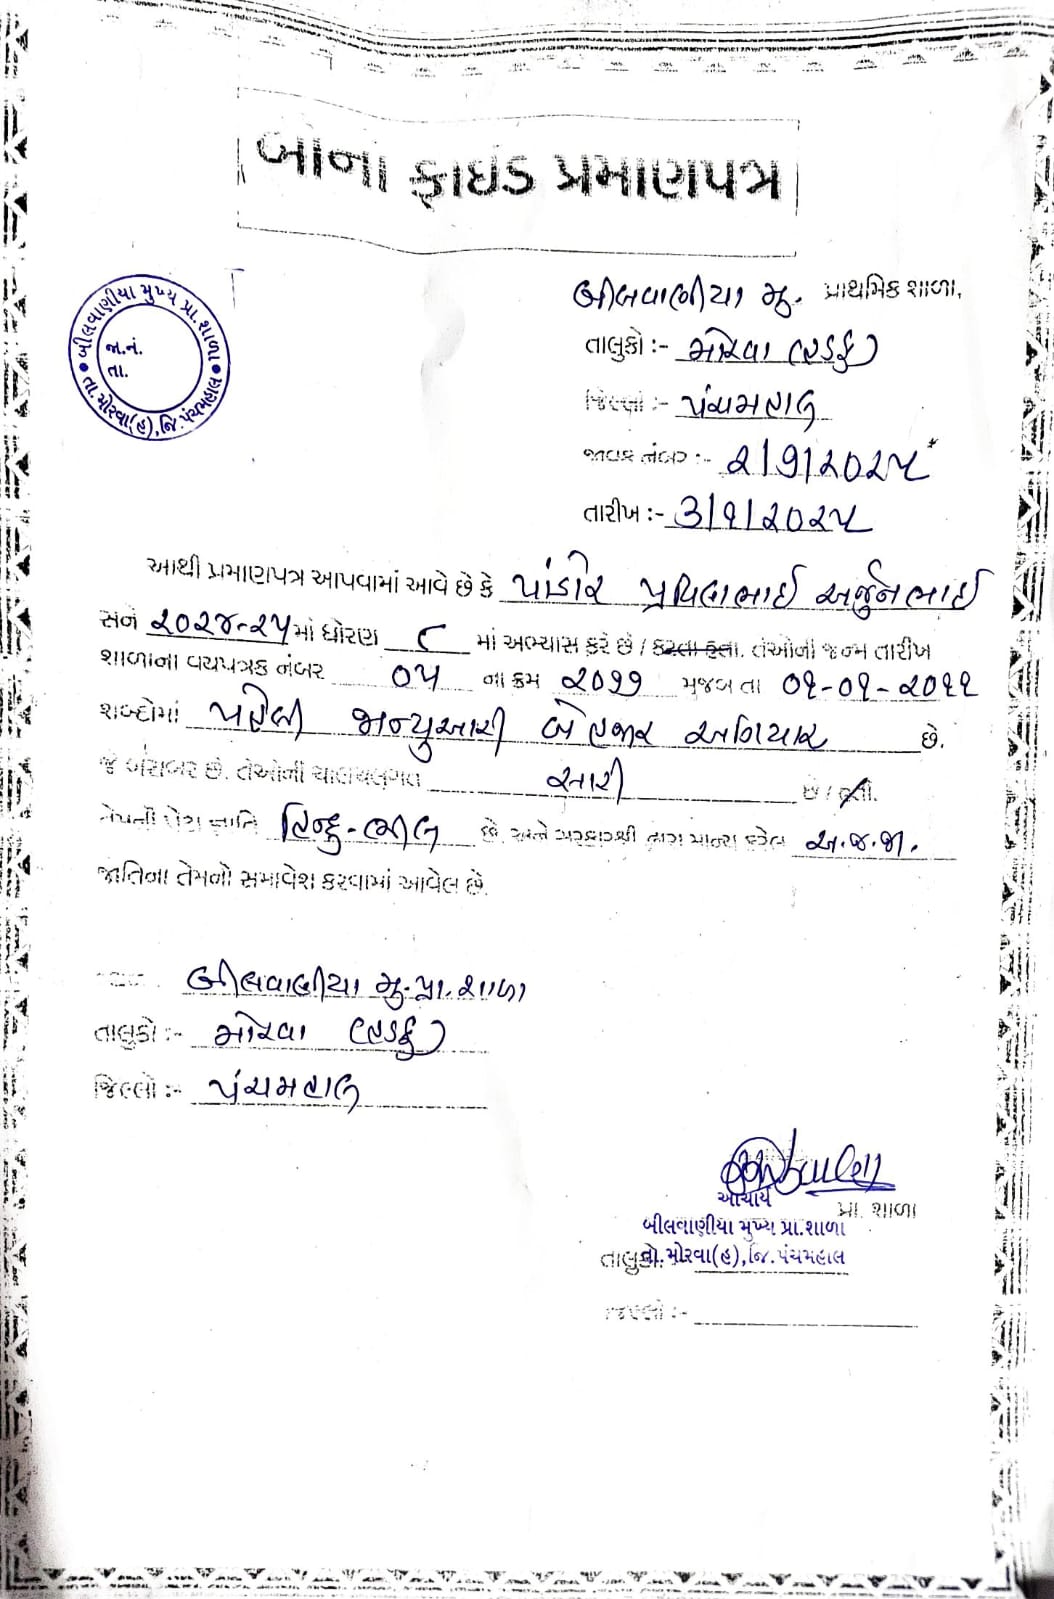 બોના ફાઇડ પ્રમાણપત્ર
બીલવાણીયા મુખ્ય પ્રા.શાળા
જા.નં.
તા.
તા.મોરવા(હ),જિ.પંચમહાલ
બીલવાણીયા મુ. પ્રાથમિક શાળા,
તાલુકો :- મોરવા (હડફ)
જિલ્લો :- પંચમહાલ
જાવક નંબર :- ૨/૧/૨૦૨૫
તારીખ :- ૩/૧/૨૦૨૫
આથી પ્રમાણપત્ર આપવામાં આવે છે કે પાંડોર પ્રવિણભાઈ અર્જુનભાઈ
સને ૨૦૨૪-૨૫ માં ધોરણ ૮ માં અભ્યાસ કરે છે / કરતા હતા. તેઓની જન્મ તારીખ
શાળાના વયપત્રક નંબર ૦૫ ના ક્રમ ૨૦૧૧ મુજબ તા ૦૧-૦૧-૨૦૧૧
શબ્દોમાં પહેલી જાન્યુઆરી બે હજાર અગિયાર છે.
જે બરાબર છે. તેઓની ચાલચલગત સારી છે / હતી.
તેમની પેટા જ્ઞાતિ હિન્દુ-ભીલ છે. અને સરકારશ્રી દ્વારા માન્ય કરેલ અ.જ.જા.
જાતિના તેમનો સમાવેશ કરવામાં આવેલ છે.
બીલવાણીયા મુ.પ્રા.શાળા
તાલુકો :- મોરવા (હડફ)
જિલ્લો :- પંચમહાલ
આચાર્ય
પ્રા. શાળા
બીલવાણીયા મુખ્ય પ્રા.શાળા
તાલુકો :- તા.મોરવા(હ),જિ.પંચમહાલ
જિલ્લો :-